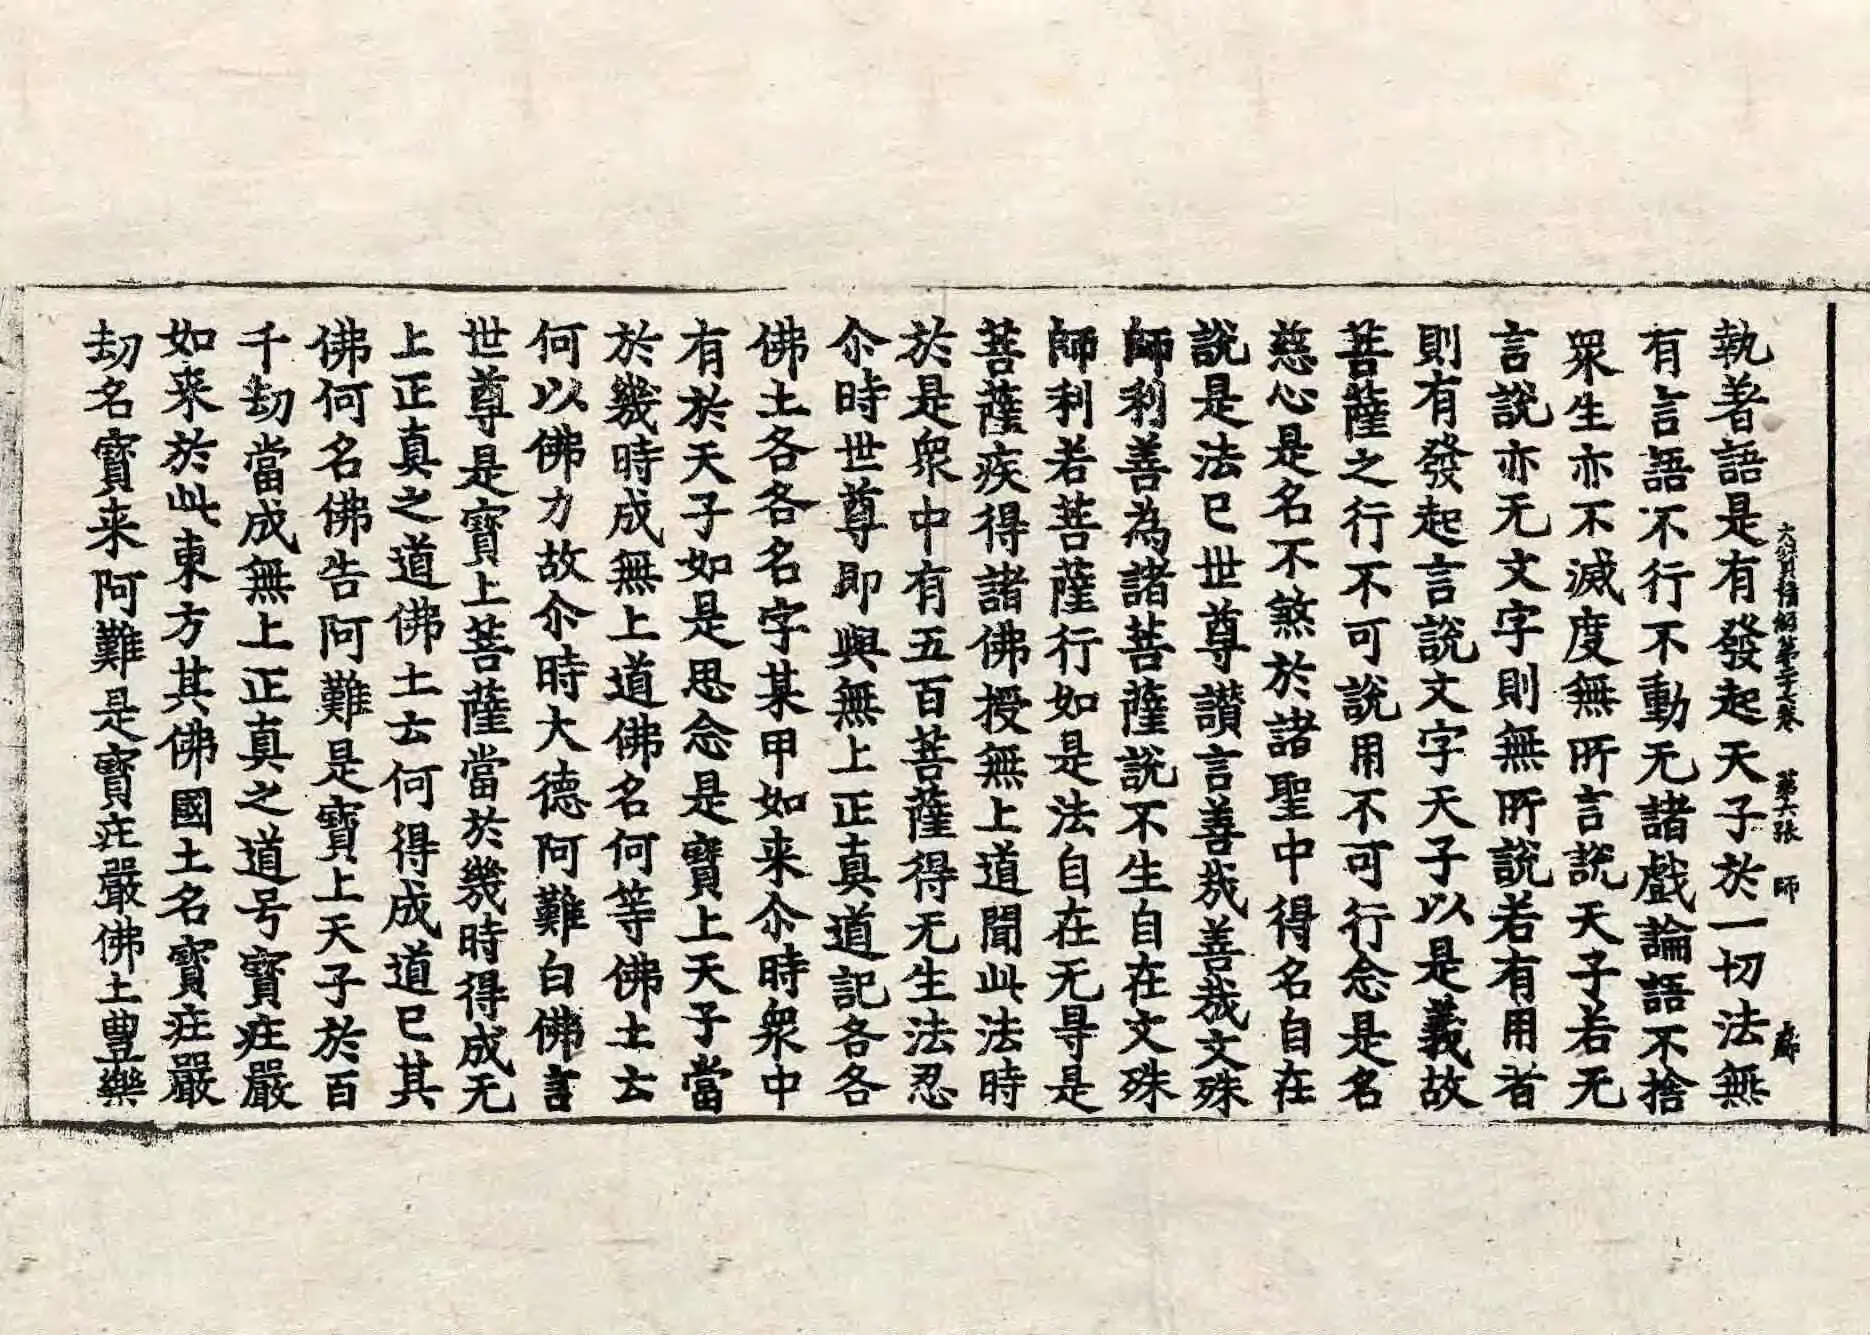 大寶積經第二十六卷 第六張 師
執著語是有發起天子於一切法無
有言語不行不動无諸戲論語不捨
眾生亦不滅度無所言說天子若无
言說亦无文字則無所說若有用者
則有發起言說文字天子以是義故
菩薩之行不可說用不可行念是名
慈心是名不煞於諸聖中得名自在
說是法已世尊讃言善㢤善㢤文殊
師利善為諸菩薩說不生自在文殊
師利若菩薩行如是法自在无㝵是
菩薩疾得諸佛授無上道聞此法時
於是衆中有五百菩薩得无生法忍
尒時世尊即與無上正真道記各各
佛土各各名字某甲如来尒時衆中
有於天子如是思念是寶上天子當
於幾時成無上道佛名何等佛土云
何以佛力故尒時大德阿難白佛言
世尊是寶上菩薩當於幾時得成无
上正真之道佛土云何得成道已其
佛何名佛告阿難是寶上天子於百
千劫當成無上正真之道号寶庄嚴
如来於此東方其佛國土名寶庄嚴
劫名寶来阿難是寶庄嚴佛土豊樂